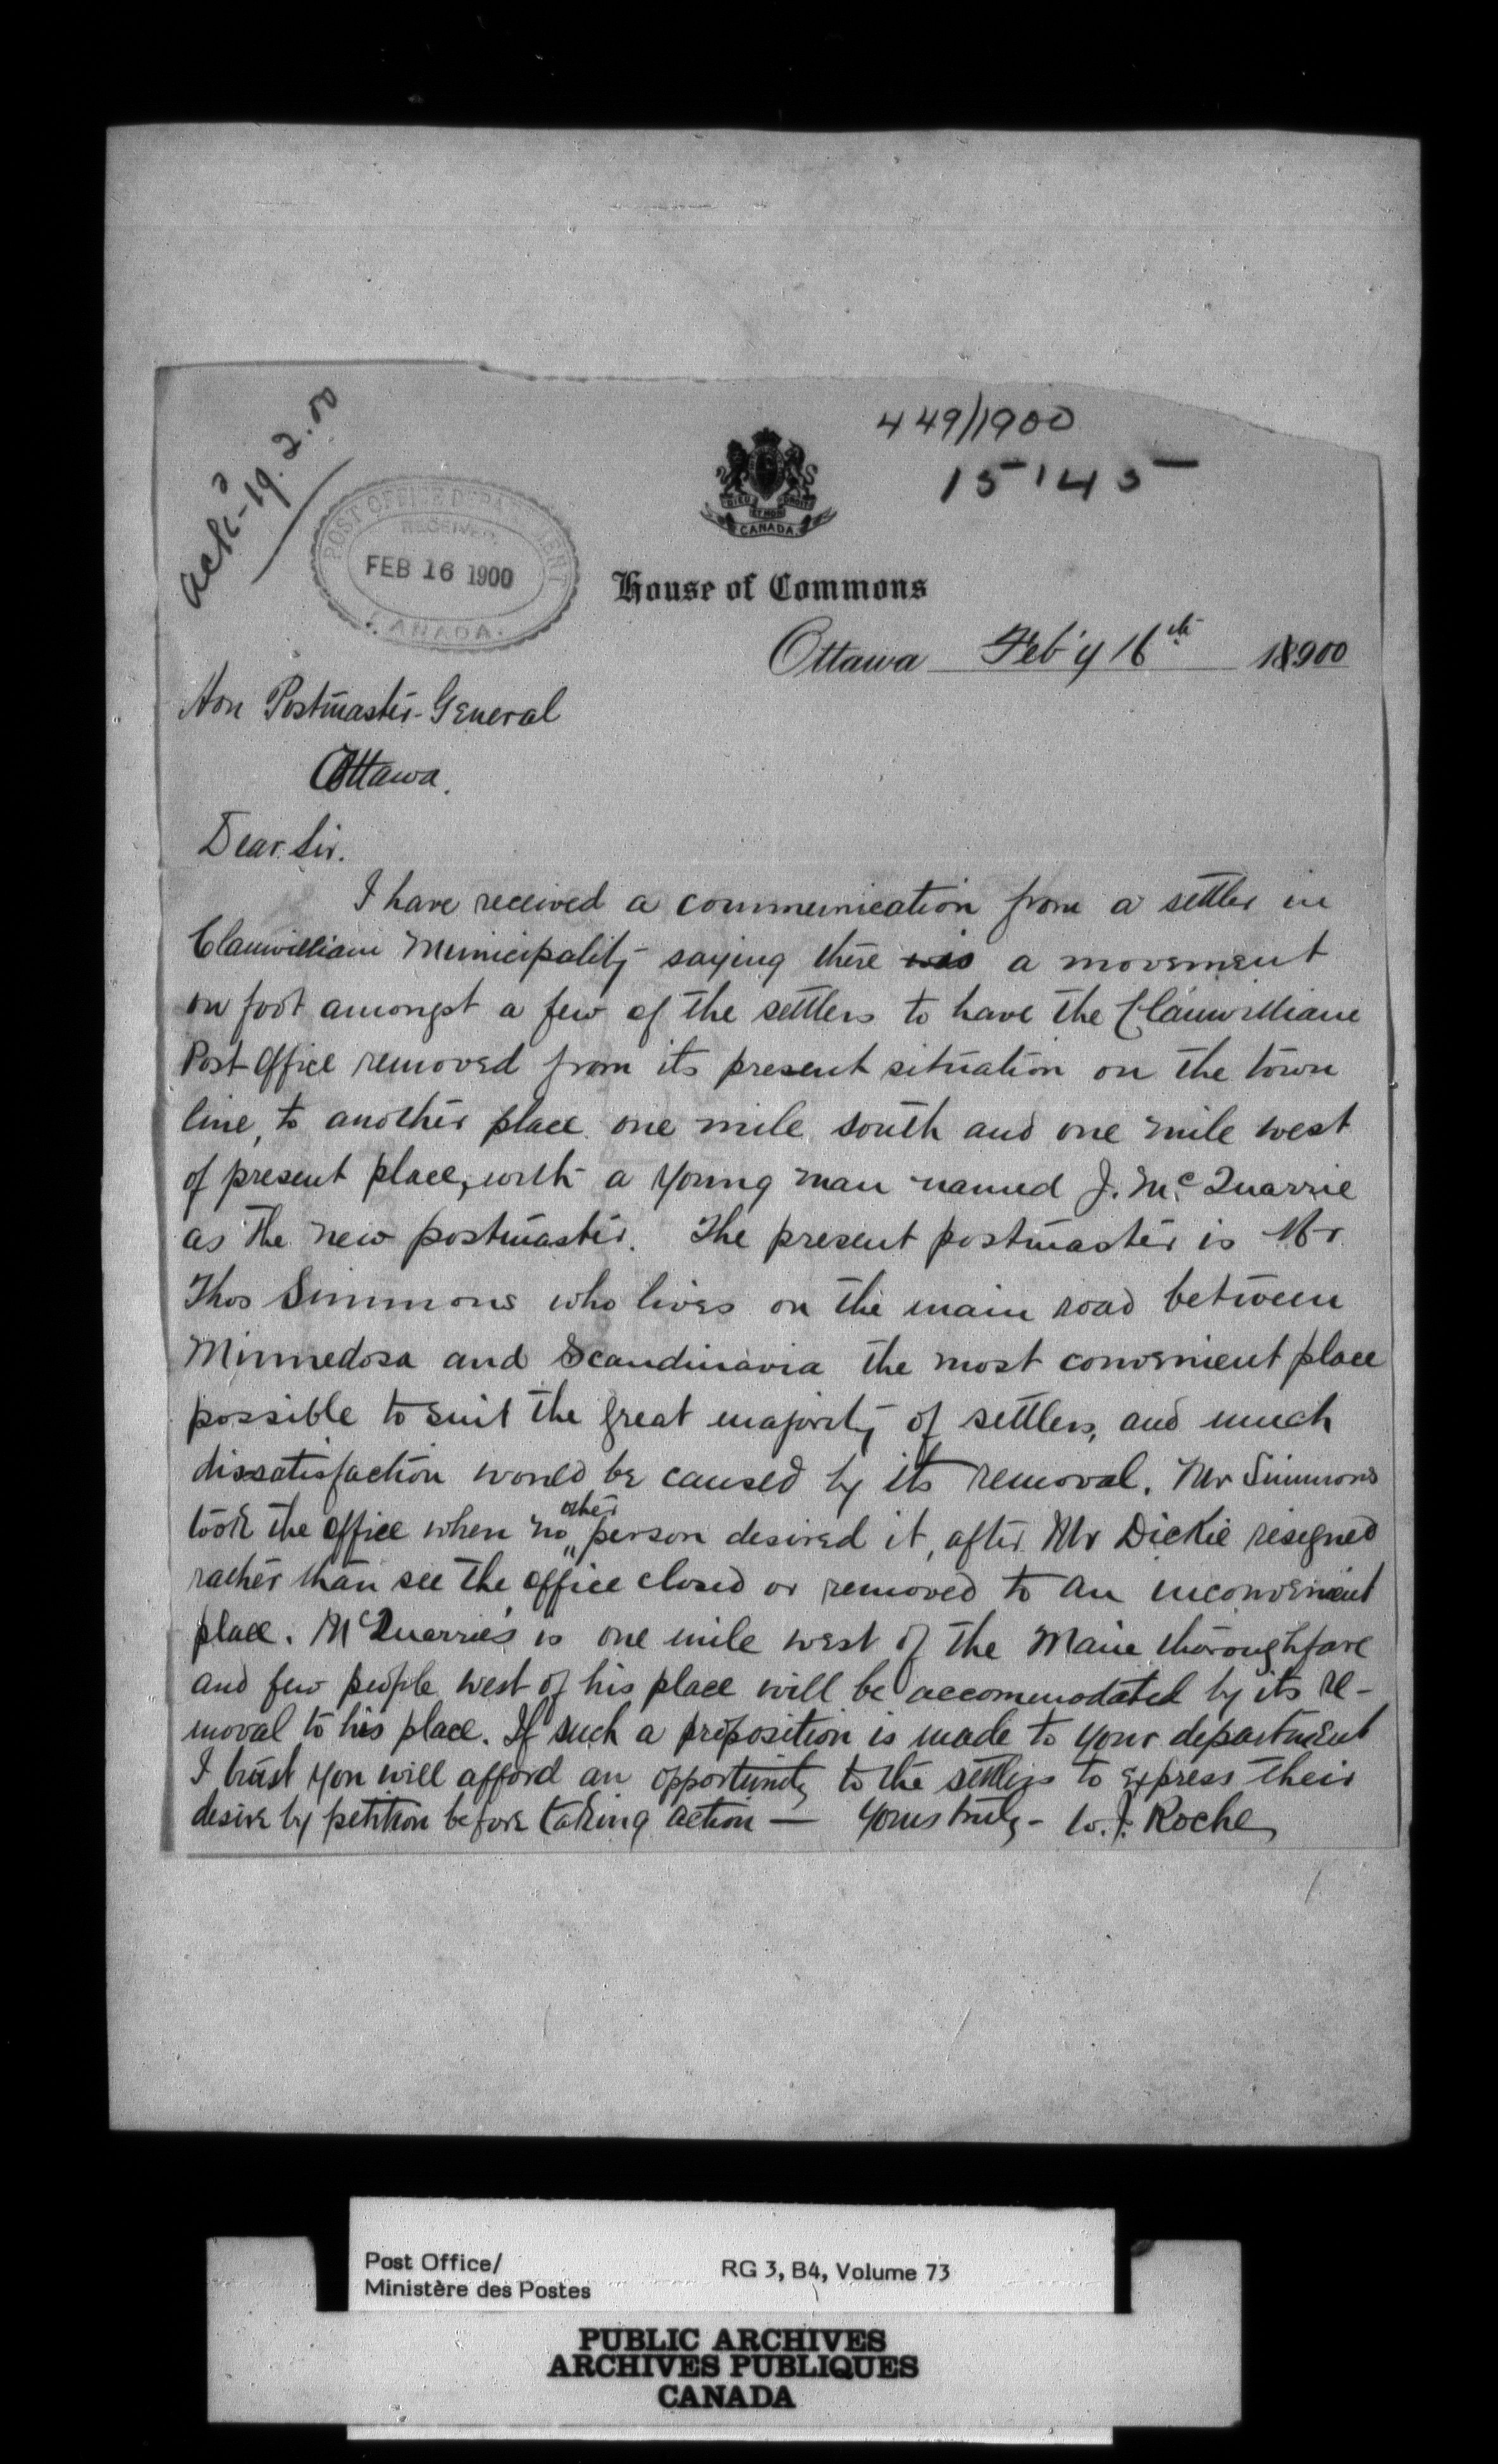 449/1900
15145
ack'd 19.2.00
POST OFFICE DEPARTMENT
RECEIVED
FEB 16 1900
CANADA.
DIEU ET MON DROIT
CANADA
House of Commons
Ottawa Feb'y 16th 1900
Hon Postmaster-General
Ottawa.
Dear Sir.
I have received a communication from a settler in
Clanwilliam Municipality saying there was a movement
on foot amongst a few of the settlers to have the Clanwilliam
Post-Office removed from its present situation on the town
line, to another place one mile south and one mile west
of present place, with a young man named J. McQuarrie
as the new postmaster. The present postmaster is Mr
Thos Simmons who lives on the main road between
Minnedosa and Scandinavia the most convenient place
possible to suit the great majority of settlers, and much
dissatisfaction would be caused by its removal. Mr Simmons
took the office when no other person desired it, after Mr Dickie resigned
rather than see the office closed or removed to an inconvenient
place. McQuarrie's is one mile west of the Main thoroughfare
and few people west of his place will be accommodated by its re-
moval to his place. If such a proposition is made to your department
I trust you will afford an opportunity to the settlers to express their
desire by petition before taking action — Yours truly - W. J. Roche
Post Office/ RG 3, B4, Volume 73
Ministère des Postes
PUBLIC ARCHIVES
ARCHIVES PUBLIQUES
CANADA